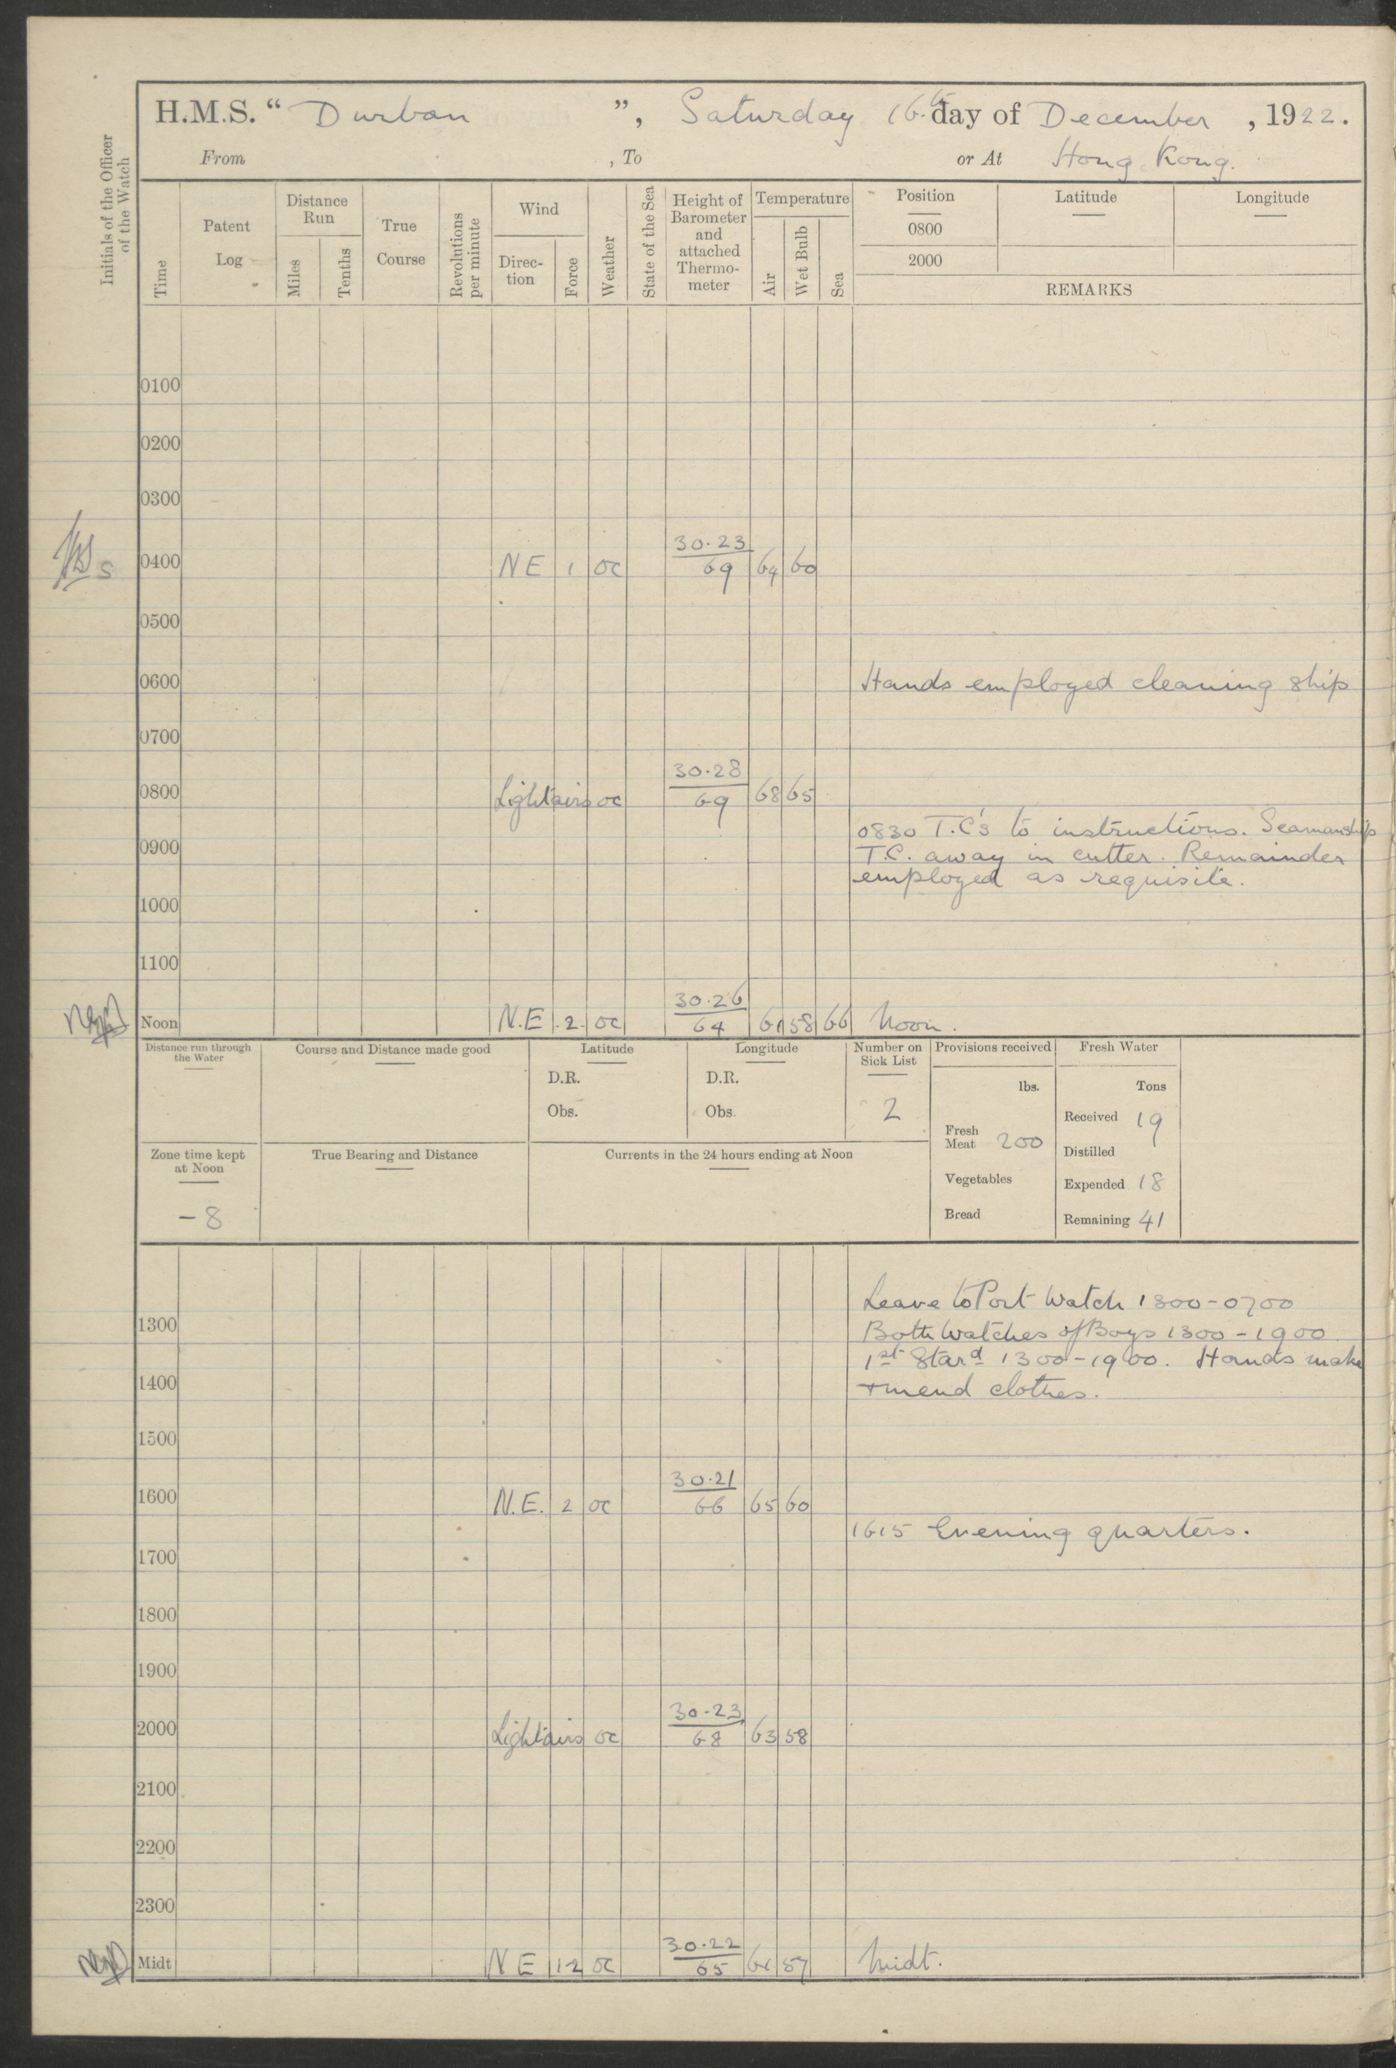 H.M.S. “ Durban ”, Saturday 16th day of December, 1922.
From , To or At Hong Kong.
Initials of the Officer of the Watch
Time
Patent Log
Distance Run
Miles
Tenths
True Course
Revolutions per minute
Wind
Direc-tion
Force
Weather
State of the Sea
Height of Barometer and attached Thermo-meter
Temperature
Air
Wet Bulb
Sea
Position Latitude Longitude
0800
2000
REMARKS
0100
0200
0300
0400 NE 1 oc 30.23 69 64 60
0500
0600 Hands employed cleaning ship
0700
0800 Light airs oc 30.28 69 68 65
0830 T.C's to instructions. Seamanship
0900 T.C. away in cutter. Remainder
employed as requisite.
1000
1100
Noon N.E 2 oc 30.26 64 61 58 66 Noon.
Distance run through the Water
Course and Distance made good
Latitude
D.R.
Obs.
Longitude
D.R.
Obs.
Number on Sick List
2
Provisions received
lbs.
Fresh Meat 200
Vegetables
Bread
Fresh Water
Tons
Received 19
Distilled
Expended 18
Remaining 41
Zone time kept at Noon
-8
True Bearing and Distance
Currents in the 24 hours ending at Noon
Leave to Port Watch 1300-0700
1300 Both Watches of Boys 1300-1900
1st Stard 1300-1900. Hands make
1400 + mend clothes.
1500
1600 N.E. 2 oc 30.21 66 65 60
1615 Evening quarters.
1700
1800
1900
2000 Light airs oc 30.23 68 63 58
2100
2200
2300
Midt N E 1-2 oc 30.22 65 61 57 Midt.